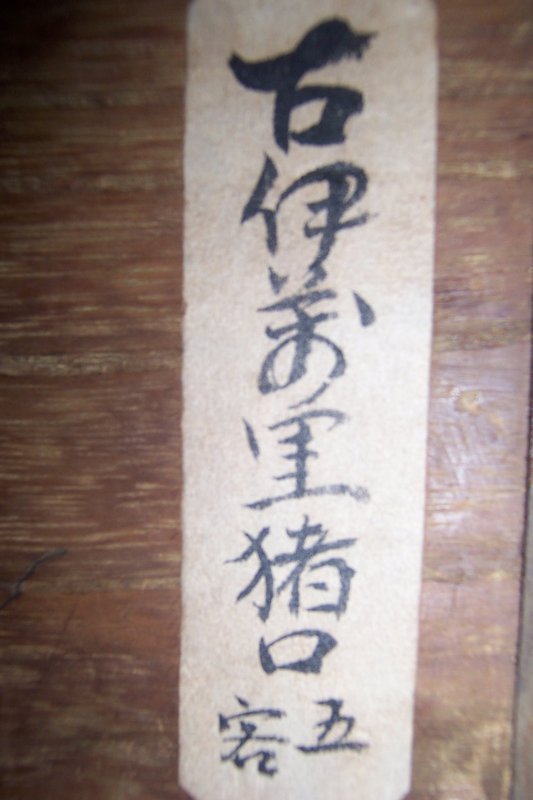 古伊萬里猪口
五客